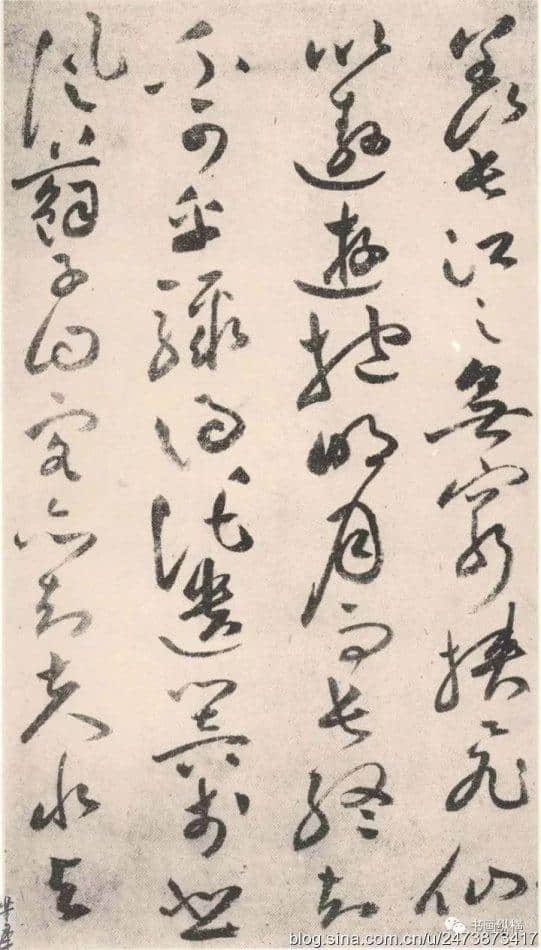 羨長江之無窮挾飛仙
以遨遊抱明月而長終知
不可乎驟得托遺響於悲
風蘇子曰客亦知夫水与
书画纵横
blog.sina.com.cn/u/2473873417